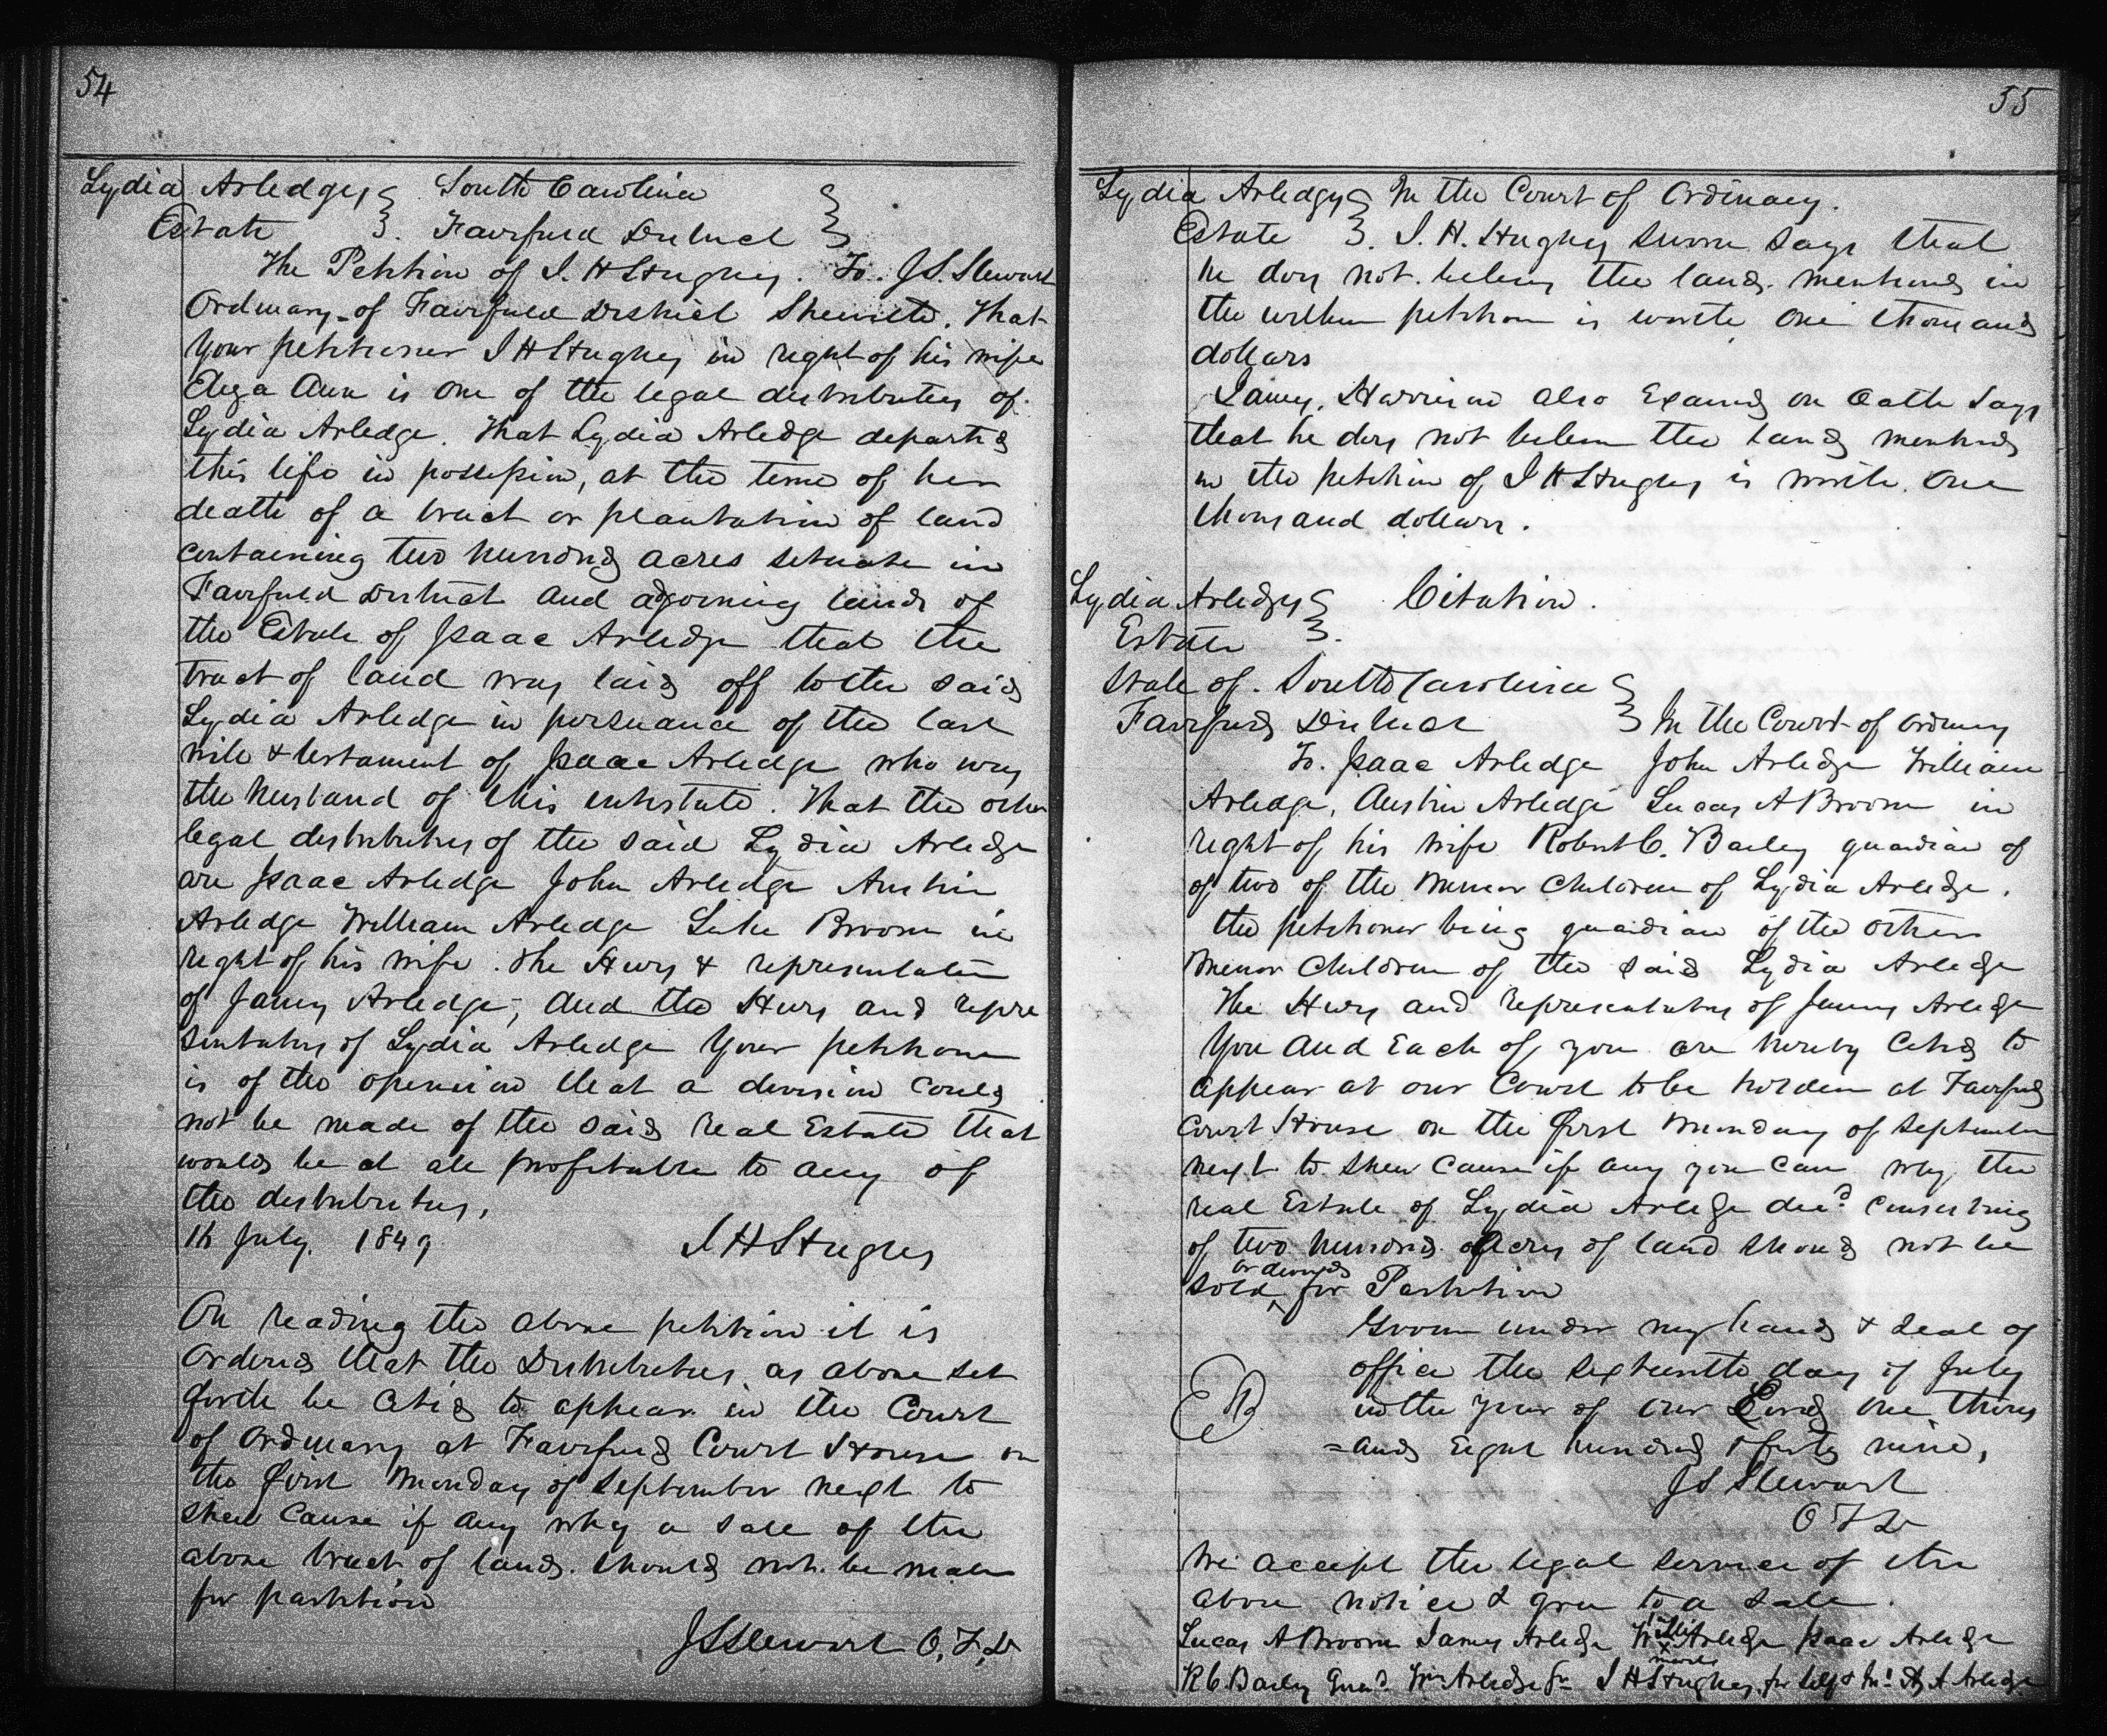 54
Lydia Arledges } South Carolina }
Estate } Fairfield District }
The Petition of I. H Hughes. To. J S. Stewart
Ordinary of Fairfield District Sheweth. That
Your petitioner I H Hughes in right of his wife
Eliza Ann is one of the legal distributees of
Lydia Arledge. That Lydia Arledge departed
this life in possession, at the time of her
death of a tract or plantation of land
containing two hundred acres situate in
Fairfield District and adjoining lands of
the Estate of Isaac Arledge that the
tract of land was laid off to the said
Lydia Arledge in persuance of the last
will & testament of Isaac Arledge who was
the husband of this intestate. That the other
legal distributees of the said Lydia Arledge
are Isaac Arledge John Arledge Austin
Arledge William Arledge Luke Broom in
right of his wife. The Heirs & representatives
of James Arledge; and the Heirs and repre
sentatives of Lydia Arledge Your petitioner
is of the opinion that a division could
not be made of the said real Estate that
would be at all profitable to any of
the distributees,
16 July. 1849 I H Hughes
On reading the above petition it is
Ordered that the Distributees as above set
forth be cited to appear in the Court
of Ordinary at Fairfield Court House on
the first Monday of September next to
shew cause if any why a sale of the
above tract of land. should not be made
for partition
J S Stewart O, F, D
55
Lydia Arledges } In the Court of Ordinary.
Estate }. I. H. Hughes sworn says that
he does not believe the land mentioned in
the within petition is worth one thousand
dollars
James Harrison also Examined on Oath says
that he does not believe the land mentioned
in the petition of I H Hughes is worth one
thousand dollars.
Lydia Arledges } Citation.
Estate }.
State of. South Carolina }
Fairfield District } In the Court of Ordinary
To. Isaac Arledge John Arledge William
Arledge, Austin Arledge Lucas A Broom in
right of his wife Robert C. Bailey guardian of
of two of the Minor Children of Lydia Arledge.
the petitioner being guardian of the other
Minor Children of the said Lydia Arledge
The Heirs and representatives of James Arledge
You and Each of you are hereby Cited to
appear at our Court to be holden at Fairfield
Court House on the first Monday of September
next to shew cause if any you can why the
real Estate of Lydia Arledge decd. consisting
of two hundred Acres of land should not be
sold or divided for Partition
Given under my hand & seal of
office the sixteenth day of July
in the year of our Lord one thous
=and Eight hundred & forty nine,
J S Stewart
O F D
We accept the legal service of the
above notice & gree to a sale.
Lucas A Broom James Arledge his x mark Arledge Isaac Arledge
R C Bailey Guad. Wm Arledge Sr I H Hughes for self & A Arledge